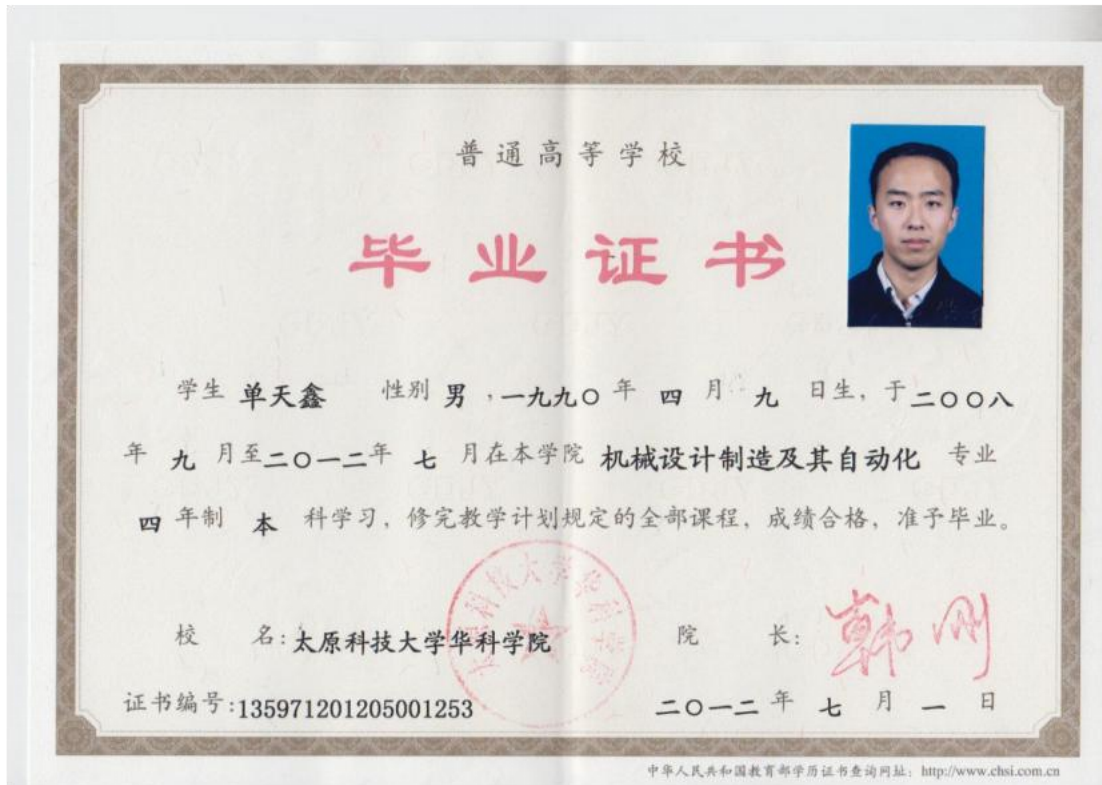 普通高等学校
毕业证书
学生 单天鑫 性别 男 , 一九九〇 年 四 月 九 日生, 于 二〇〇八
年 九 月至 二〇一二 年 七 月在本学院 机械设计制造及其自动化 专业
四 年制 本 科学习, 修完教学计划规定的全部课程, 成绩合格, 准予毕业。
太原科技大学华科学院
校 名: 太原科技大学华科学院 院 长: 韩刚
证书编号: 135971201205001253 二〇一二 年 七 月 一 日
中华人民共和国教育部学历证书查询网址: http://www.chsi.com.cn